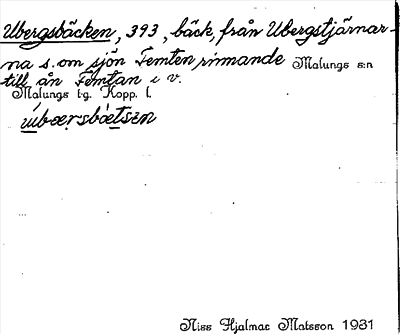 Ubergsbäcken, 393, bäck, från Ubergstjärnar-
na s. om sjön Femten rinnande
Malungs s:n
till ån Femtan i v.
Malungs tg. Kopp. l.
Niss Hjalmar Matsson 1931